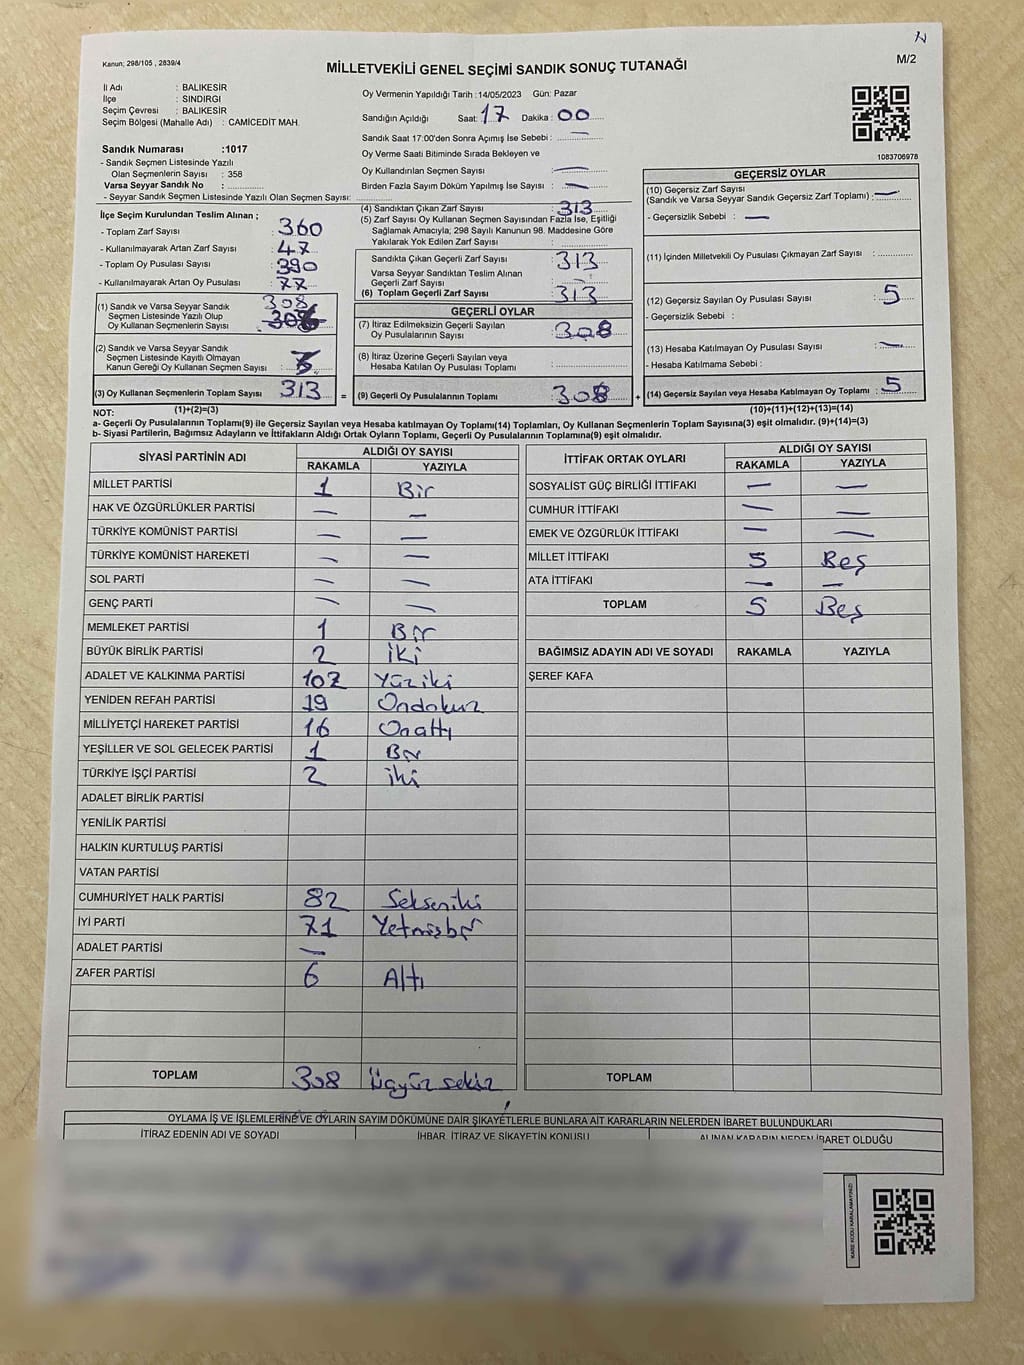 Kanun; 298/105 , 2839/4
M/2
MİLLETVEKİLİ GENEL SEÇİMİ SANDIK SONUÇ TUTANAĞI
İl Adı : BALIKESİR
İlçe : SINDIRGI
Seçim Çevresi : BALIKESİR
Seçim Bölgesi (Mahalle Adı) : CAMİCEDİT MAH.
Sandık Numarası :1017
- Sandık Seçmen Listesinde Yazılı
Olan Seçmenlerin Sayısı : 358
Varsa Seyyar Sandık No :
- Seyyar Sandık Seçmen Listesinde Yazılı Olan Seçmen Sayısı:
Oy Vermenin Yapıldığı Tarih :14/05/2023 Gün: Pazar
Sandığın Açıldığı Saat: 17 Dakika : 00
Sandık Saat 17:00'den Sonra Açımış İse Sebebi : —
Oy Verme Saati Bitiminde Sırada Bekleyen ve
Oy Kullandırılan Seçmen Sayısı : —
Birden Fazla Sayım Döküm Yapılmış İse Sayısı : —
1083706978
İlçe Seçim Kurulundan Teslim Alınan ;
- Toplam Zarf Sayısı : 360
- Kullanılmayarak Artan Zarf Sayısı : 47
- Toplam Oy Pusulası Sayısı : 390
- Kullanılmayarak Artan Oy Pusulası : 77
(1) Sandık ve Varsa Seyyar Sandık
Seçmen Listesinde Yazılı Olup
Oy Kullanan Seçmenlerin Sayısı : 308
(2) Sandık ve Varsa Seyyar Sandık
Seçmen Listesinde Kayıtlı Olmayan
Kanun Gereği Oy Kullanan Seçmen Sayısı : 5
(3) Oy Kullanan Seçmenlerin Toplam Sayısı : 313 =
(4) Sandıktan Çıkan Zarf Sayısı : 313
(5) Zarf Sayısı Oy Kullanan Seçmen Sayısından Fazla İse, Eşitliği
Sağlamak Amacıyla; 298 Sayılı Kanunun 98. Maddesine Göre
Yakılarak Yok Edilen Zarf Sayısı :
Sandıkta Çıkan Geçerli Zarf Sayısı : 313
Varsa Seyyar Sandıktan Teslim Alınan
Geçerli Zarf Sayısı : —
(6) Toplam Geçerli Zarf Sayısı : 313
GEÇERLİ OYLAR
(7) İtiraz Edilmeksizin Geçerli Sayılan
Oy Pusulalarının Sayısı : 308
(8) İtiraz Üzerine Geçerli Sayılan veya
Hesaba Katılan Oy Pusulası Toplamı :
(9) Geçerli Oy Pusulalarının Toplamı : 308 +
GEÇERSİZ OYLAR
(10) Geçersiz Zarf Sayısı
(Sandık ve Varsa Seyyar Sandık Geçersiz Zarf Toplamı) : —
- Geçersizlik Sebebi : —
(11) İçinden Milletvekili Oy Pusulası Çıkmayan Zarf Sayısı :
(12) Geçersiz Sayılan Oy Pusulası Sayısı : 5
- Geçersizlik Sebebi :
(13) Hesaba Katılmayan Oy Pusulası Sayısı : —
- Hesaba Katılmama Sebebi :
(14) Geçersiz Sayılan veya Hesaba Katılmayan Oy Toplamı : 5
NOT: (1)+(2)=(3) (10)+(11)+(12)+(13)=(14)
a- Geçerli Oy Pusulalarının Toplamı(9) ile Geçersiz Sayılan veya Hesaba katılmayan Oy Toplamı(14) Toplamları, Oy Kullanan Seçmenlerin Toplam Sayısına(3) eşit olmalıdır. (9)+(14)=(3)
b- Siyasi Partilerin, Bağımsız Adayların ve İttifakların Aldığı Ortak Oyların Toplamı, Geçerli Oy Pusulalarının Toplamına(9) eşit olmalıdır.
SİYASİ PARTİNİN ADI ALDIĞI OY SAYISI
RAKAMLA YAZIYLA
MİLLET PARTİSİ 1 Bir
HAK VE ÖZGÜRLÜKLER PARTİSİ — —
TÜRKİYE KOMÜNİST PARTİSİ — —
TÜRKİYE KOMÜNİST HAREKETİ — —
SOL PARTİ — —
GENÇ PARTİ — —
MEMLEKET PARTİSİ 1 Bir
BÜYÜK BİRLİK PARTİSİ 2 İki
ADALET VE KALKINMA PARTİSİ 102 Yüziki
YENİDEN REFAH PARTİSİ 19 Ondokuz
MİLLİYETÇİ HAREKET PARTİSİ 16 Onaltı
YEŞİLLER VE SOL GELECEK PARTİSİ 1 Bir
TÜRKİYE İŞÇİ PARTİSİ 2 iki
ADALET BİRLİK PARTİSİ
YENİLİK PARTİSİ
HALKIN KURTULUŞ PARTİSİ
VATAN PARTİSİ
CUMHURİYET HALK PARTİSİ 82 Sekseniki
İYİ PARTİ 71 Yetmişbir
ADALET PARTİSİ —
ZAFER PARTİSİ 6 Altı
TOPLAM 308 Üçyüz sekiz
İTTİFAK ORTAK OYLARI ALDIĞI OY SAYISI
RAKAMLA YAZIYLA
SOSYALİST GÜÇ BİRLİĞİ İTTİFAKI — —
CUMHUR İTTİFAKI — —
EMEK VE ÖZGÜRLÜK İTTİFAKI — —
MİLLET İTTİFAKI 5 Beş
ATA İTTİFAKI — —
TOPLAM 5 Beş
BAĞIMSIZ ADAYIN ADI VE SOYADI RAKAMLA YAZIYLA
ŞEREF KAFA
TOPLAM
OYLAMA İŞ VE İŞLEMLERİNE VE OYLARIN SAYIM DÖKÜMÜNE DAİR ŞİKAYETLERLE BUNLARA AİT KARARLARIN NELERDEN İBARET BULUNDUKLARI
İTİRAZ EDENİN ADI VE SOYADI İHBAR, İTİRAZ VE ŞİKAYETİN KONUSU ALINAN KARARIN NEDEN İBARET OLDUĞU
KARE KODU KARALAMAYINIZ!